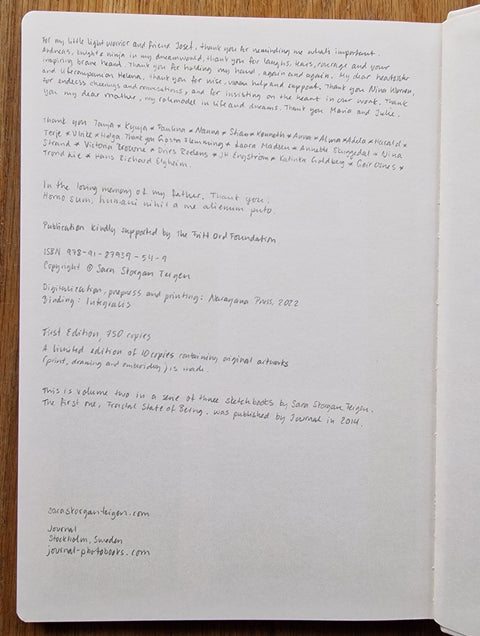 For my little light warrior and friend Josef, thank you for reminding me what's important.
Andreas, knight & ninja in my dreamworld, thank you for laughs, tears, courage and your
inspiring brave heart. Thank you for holding my hand, again and again. My dear headstar
and Helena, thank you for wise woman help and support. Thank you Nina Woman,
for endless cheerings and and for insisting on the heart in our work. Thank
you my dear mother, my rolemodel in life and dreams. Thank you Maria and Julie.
Thank you Tanja * Kyuja * Paulina * Nanna * Shan * Kenneth * Anna * Alma * Adela * Harald *
Terje * Vinke * Helga. Thank you Gösta Flemming * Laara Madsen * Annette * Nina
Strand * Victoria Browne * Dries * JH Engström * Katinka Goldberg * Geir *
Trond * Hans Richard Elgheim.
In the loving memory of my father. Thank you.
Homo sum, humani nihil a me alienum puto.
Publication kindly supported by The Fritt Ord Foundation
ISBN 978-91-87939-54-9
Copyright © Sara Skorgan Teigen
Digitalization, prepress and printing: Narayana Press, 2022
Binding: Integralis
First Edition, 750 copies
A limited edition of 10 copies containing original artworks
(print, drawing and embroidery) is made.
This is volume two in a serie of three sketchbooks by Sara Skorgan Teigen.
The first one, Fractal State of Being, was published by Journal in 2014.
saraskorganteigen.com
Journal
Stockholm, Sweden
journal-photobooks.com